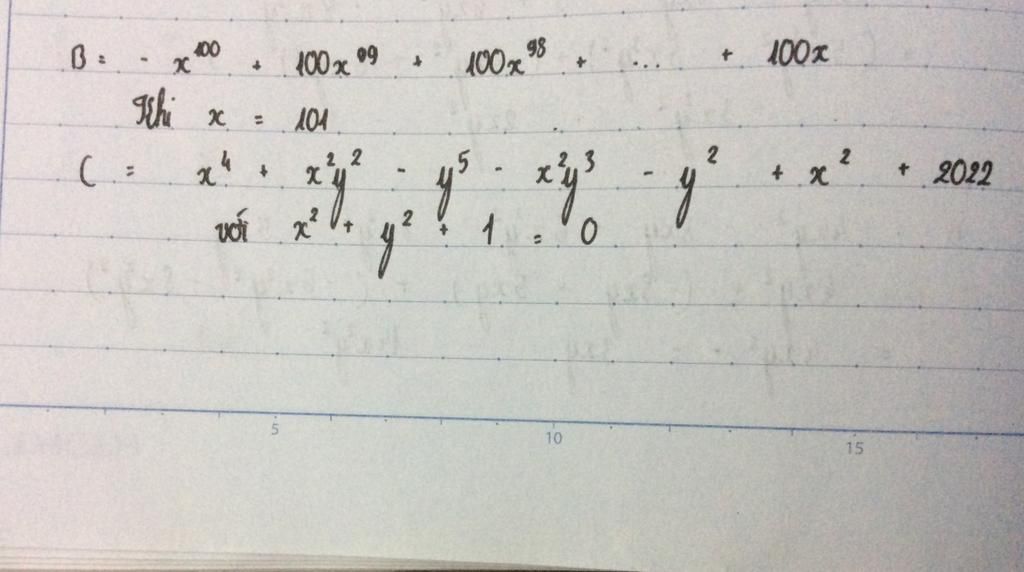 B = - x¹⁰⁰ + 100x⁹⁹ + 100x⁹⁸ + ... + 100x
Khi x = 101
C = x⁴ + x²y² - y⁵ - x²y³ - y² + x² + 2022
với x² + y² + 1 = 0
5 10 15